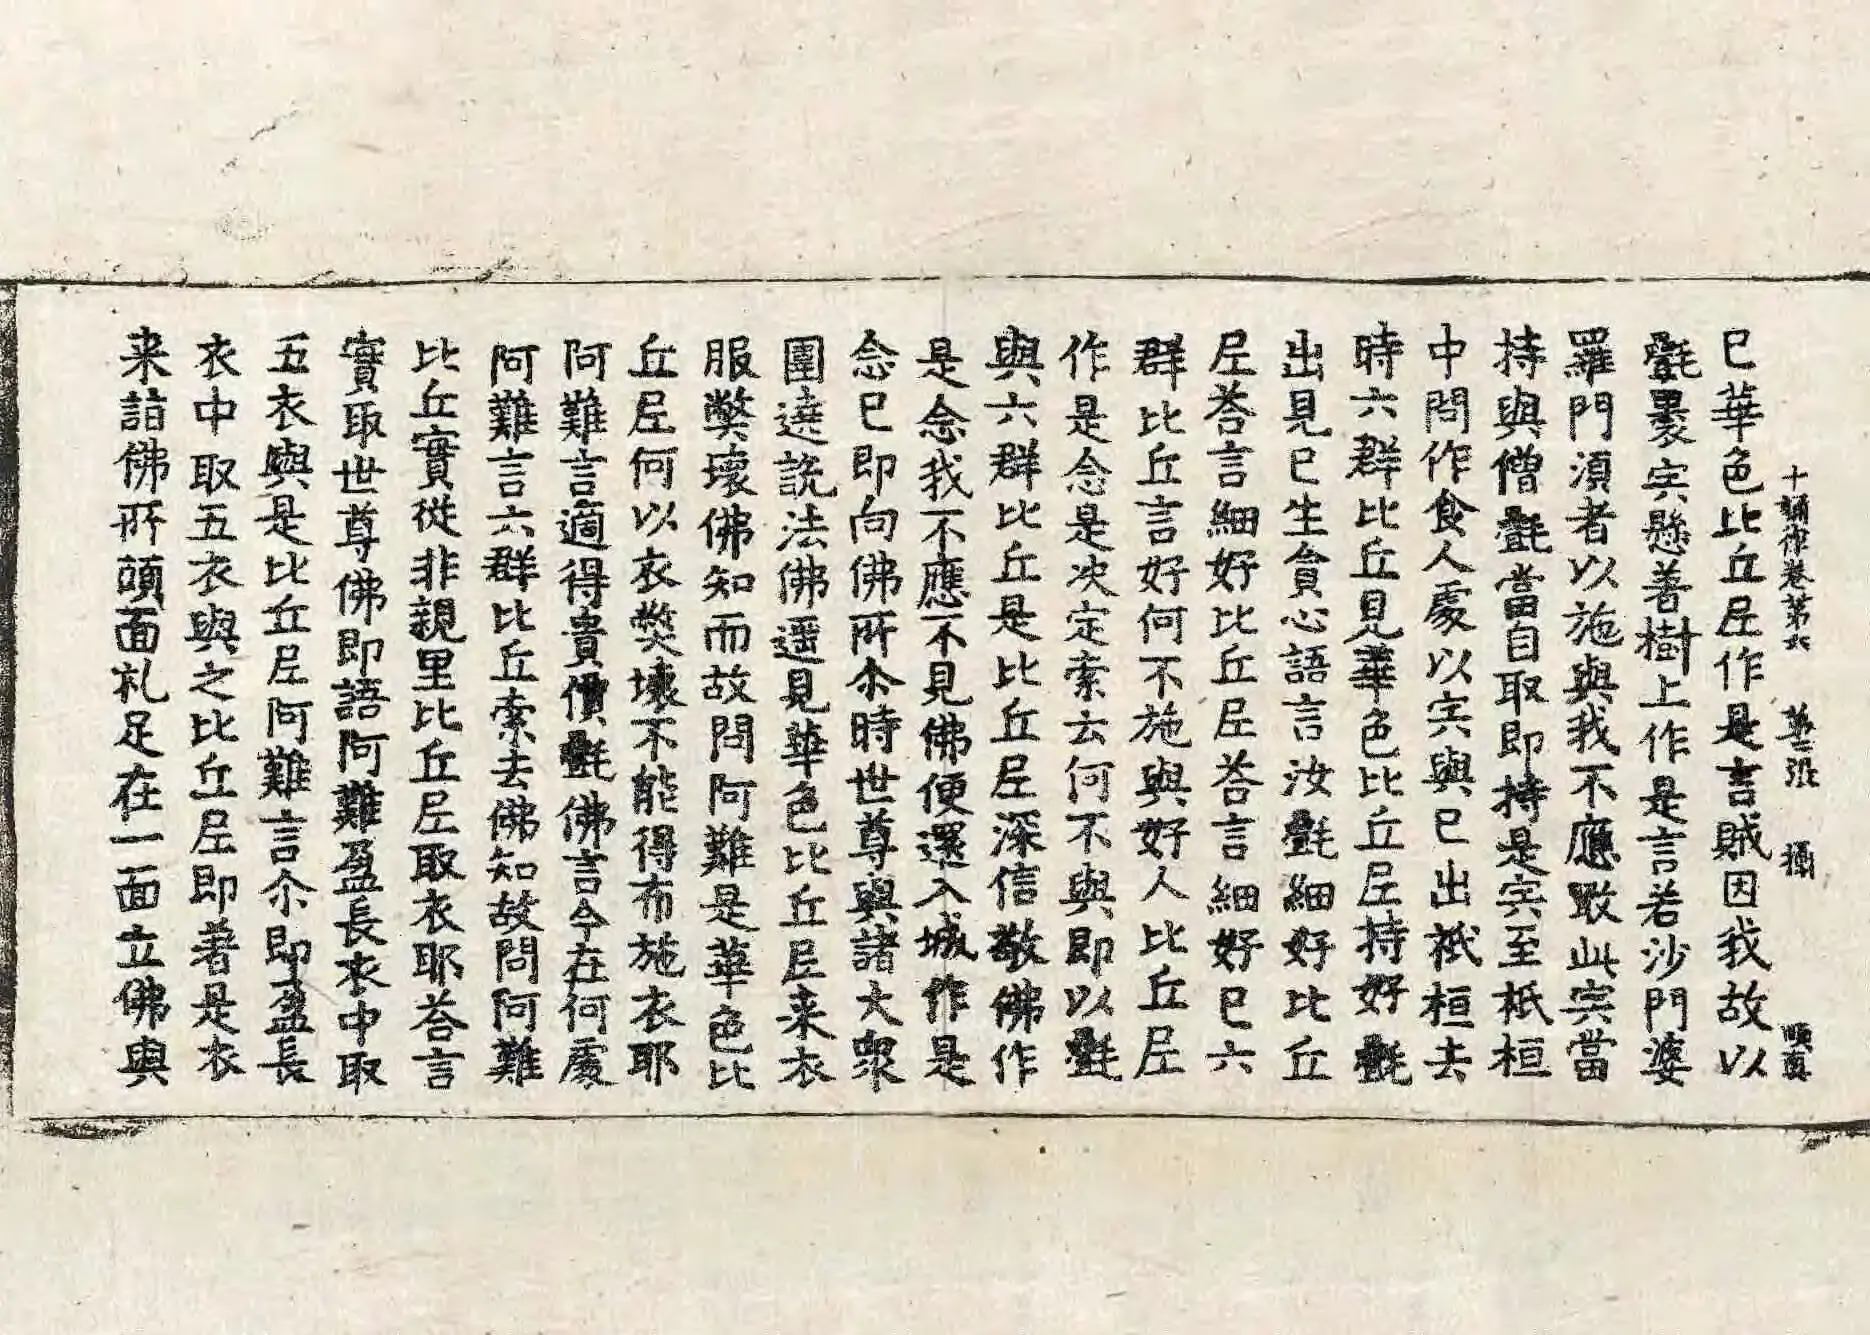 十誦律卷第六　第二張　攝　順真
已華色比丘尼作是言賊因我故以
㲲裹宍懸著樹上作是言若沙門婆
羅門湏者以施與我不應噉此宍當
持與僧㲲當自取即持是宍至祇桓
中問作食人處以宍與已出祇桓去
時六群比丘見華色比丘尼持好㲲
出見已生貪心語言汝㲲細好比丘
尼荅言細好比丘尼荅言細好已六
群比丘言好何不施與好人比丘尼
作是念是决定索去何不與即以㲲
與六群比丘是比丘尼深信敬佛作
是念我不應不見佛便還入城作是
念已即向佛所尒時世尊與諸大衆
圍遶説法佛遥見華色比丘尼来衣
服弊壞佛知而故問阿難是華色比
丘尼何以衣弊壞不能得布施衣耶
阿難言適得貴價㲲佛言今在何處
阿難言六群比丘索去佛知故問阿難
比丘實從非親里比丘尼取衣耶荅言
實取世尊佛即語阿難盈長衣中取
五衣與是比丘尼阿難言尒即盈長
衣中取五衣與之比丘尼即著是衣
来詣佛所頭面礼足在一面立佛與